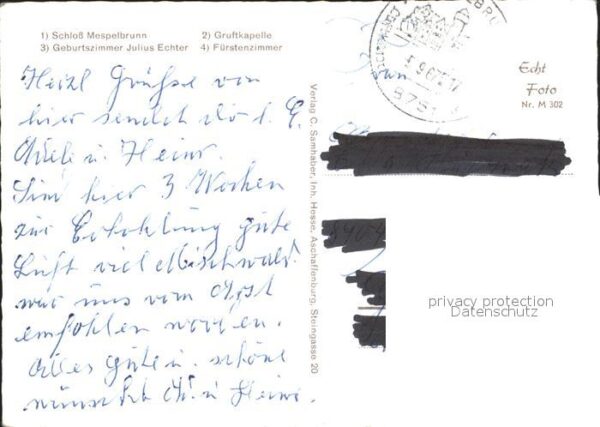 1) Schloß Mespelbrunn 2) Gruftkapelle
3) Geburtszimmer Julius Echter 4) Fürstenzimmer
Herzl Grüße von
hier sendet
u. Heinr.
Sind hier 3 Wochen
zur Erhohlung gute
Luft viel Mischwald.
war uns vom Arzt
empfohlen worden.
Alles gute u. schöne
wünscht u Heinr.
Verlag C. Samhaber, Inh. Hesse, Aschaffenburg, Steingasse 20
Echt
Foto
Nr. M 302
privacy protection
Datenschutz